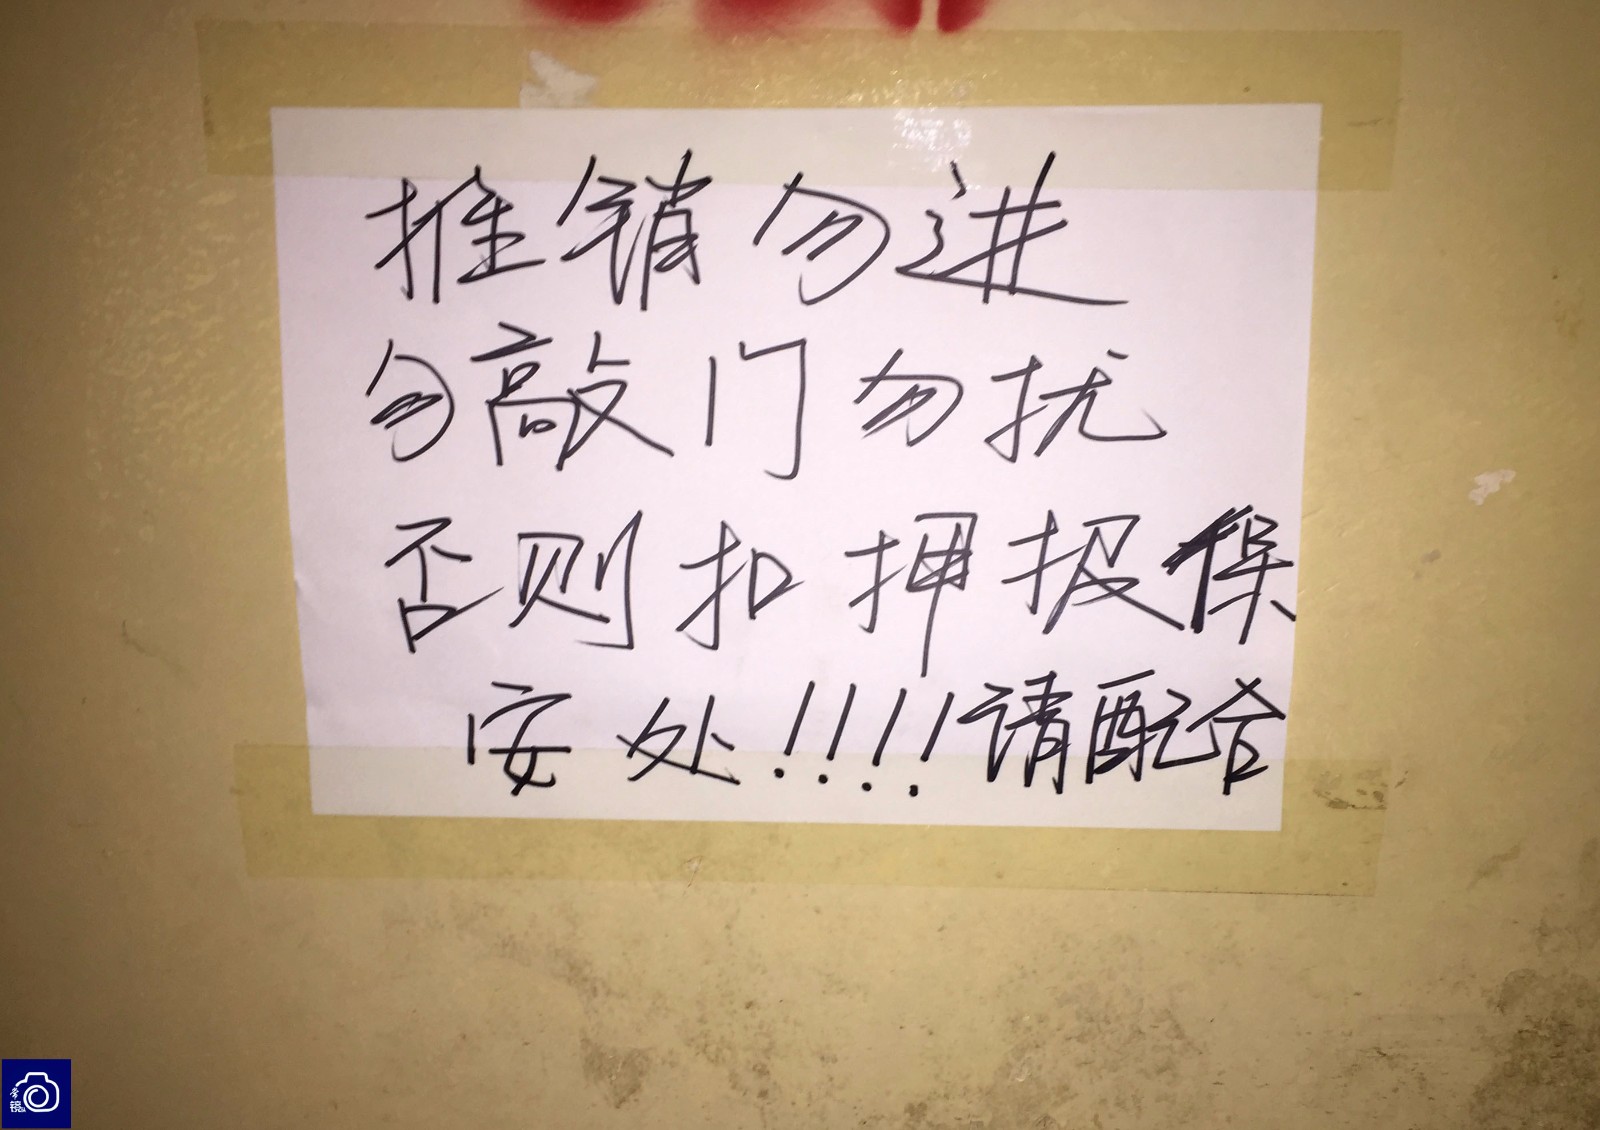 推销勿进
勿敲门勿扰
否则扣押报保
安处!!!!请配合